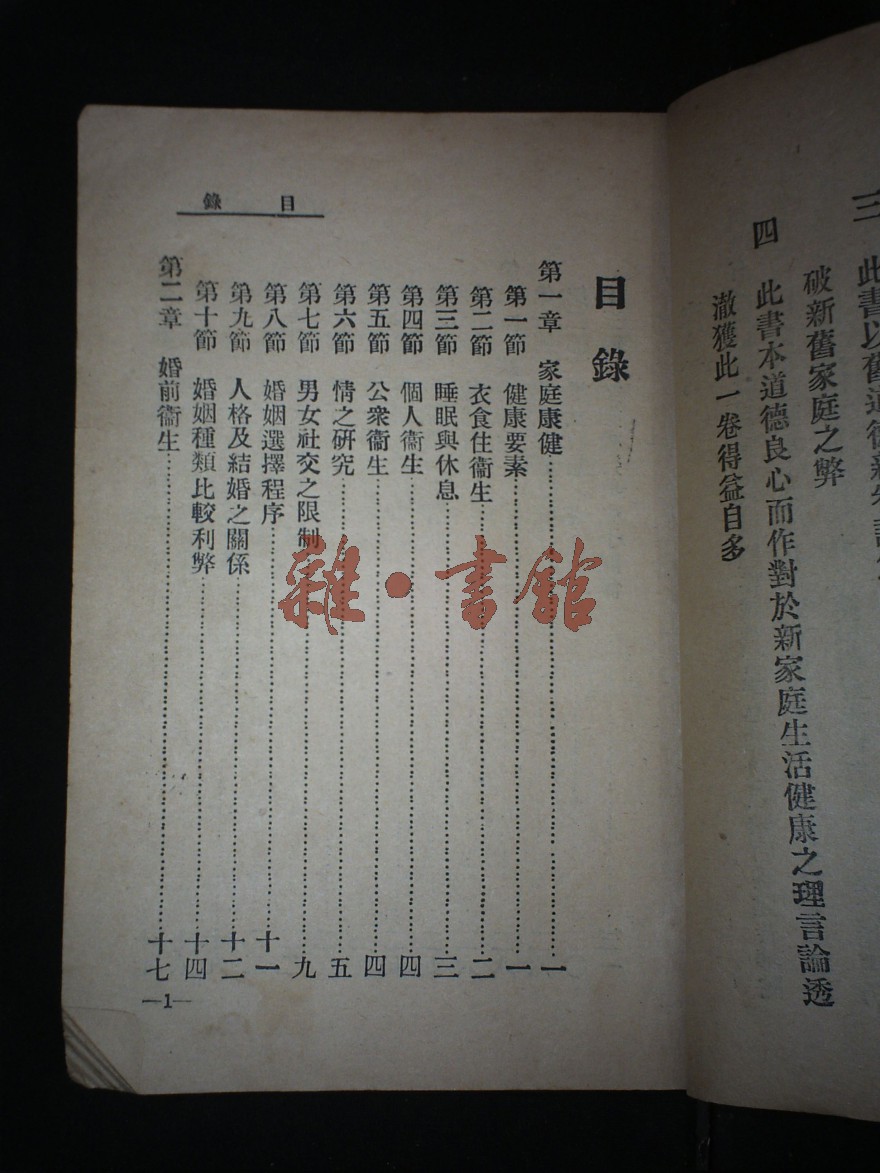 三 此書以舊道德新
破新舊家庭之弊
四 此書本道德良心而作對於新家庭生活健康之理言論透
澈獲此一卷得益自多
目錄
目錄
第一章 家庭康健……一
第一節 健康要素……一
第二節 衣食住衞生……二
第三節 睡眠與休息……三
第四節 個人衞生……四
第五節 公衆衞生……四
第六節 情之研究……五
第七節 男女社交之限制……九
第八節 婚姻選擇程序……十一
第九節 人格及結婚之關係……十二
第十節 婚姻種類比較利弊……十四
第二章 婚前衞生……十七
—1—
雜·書館